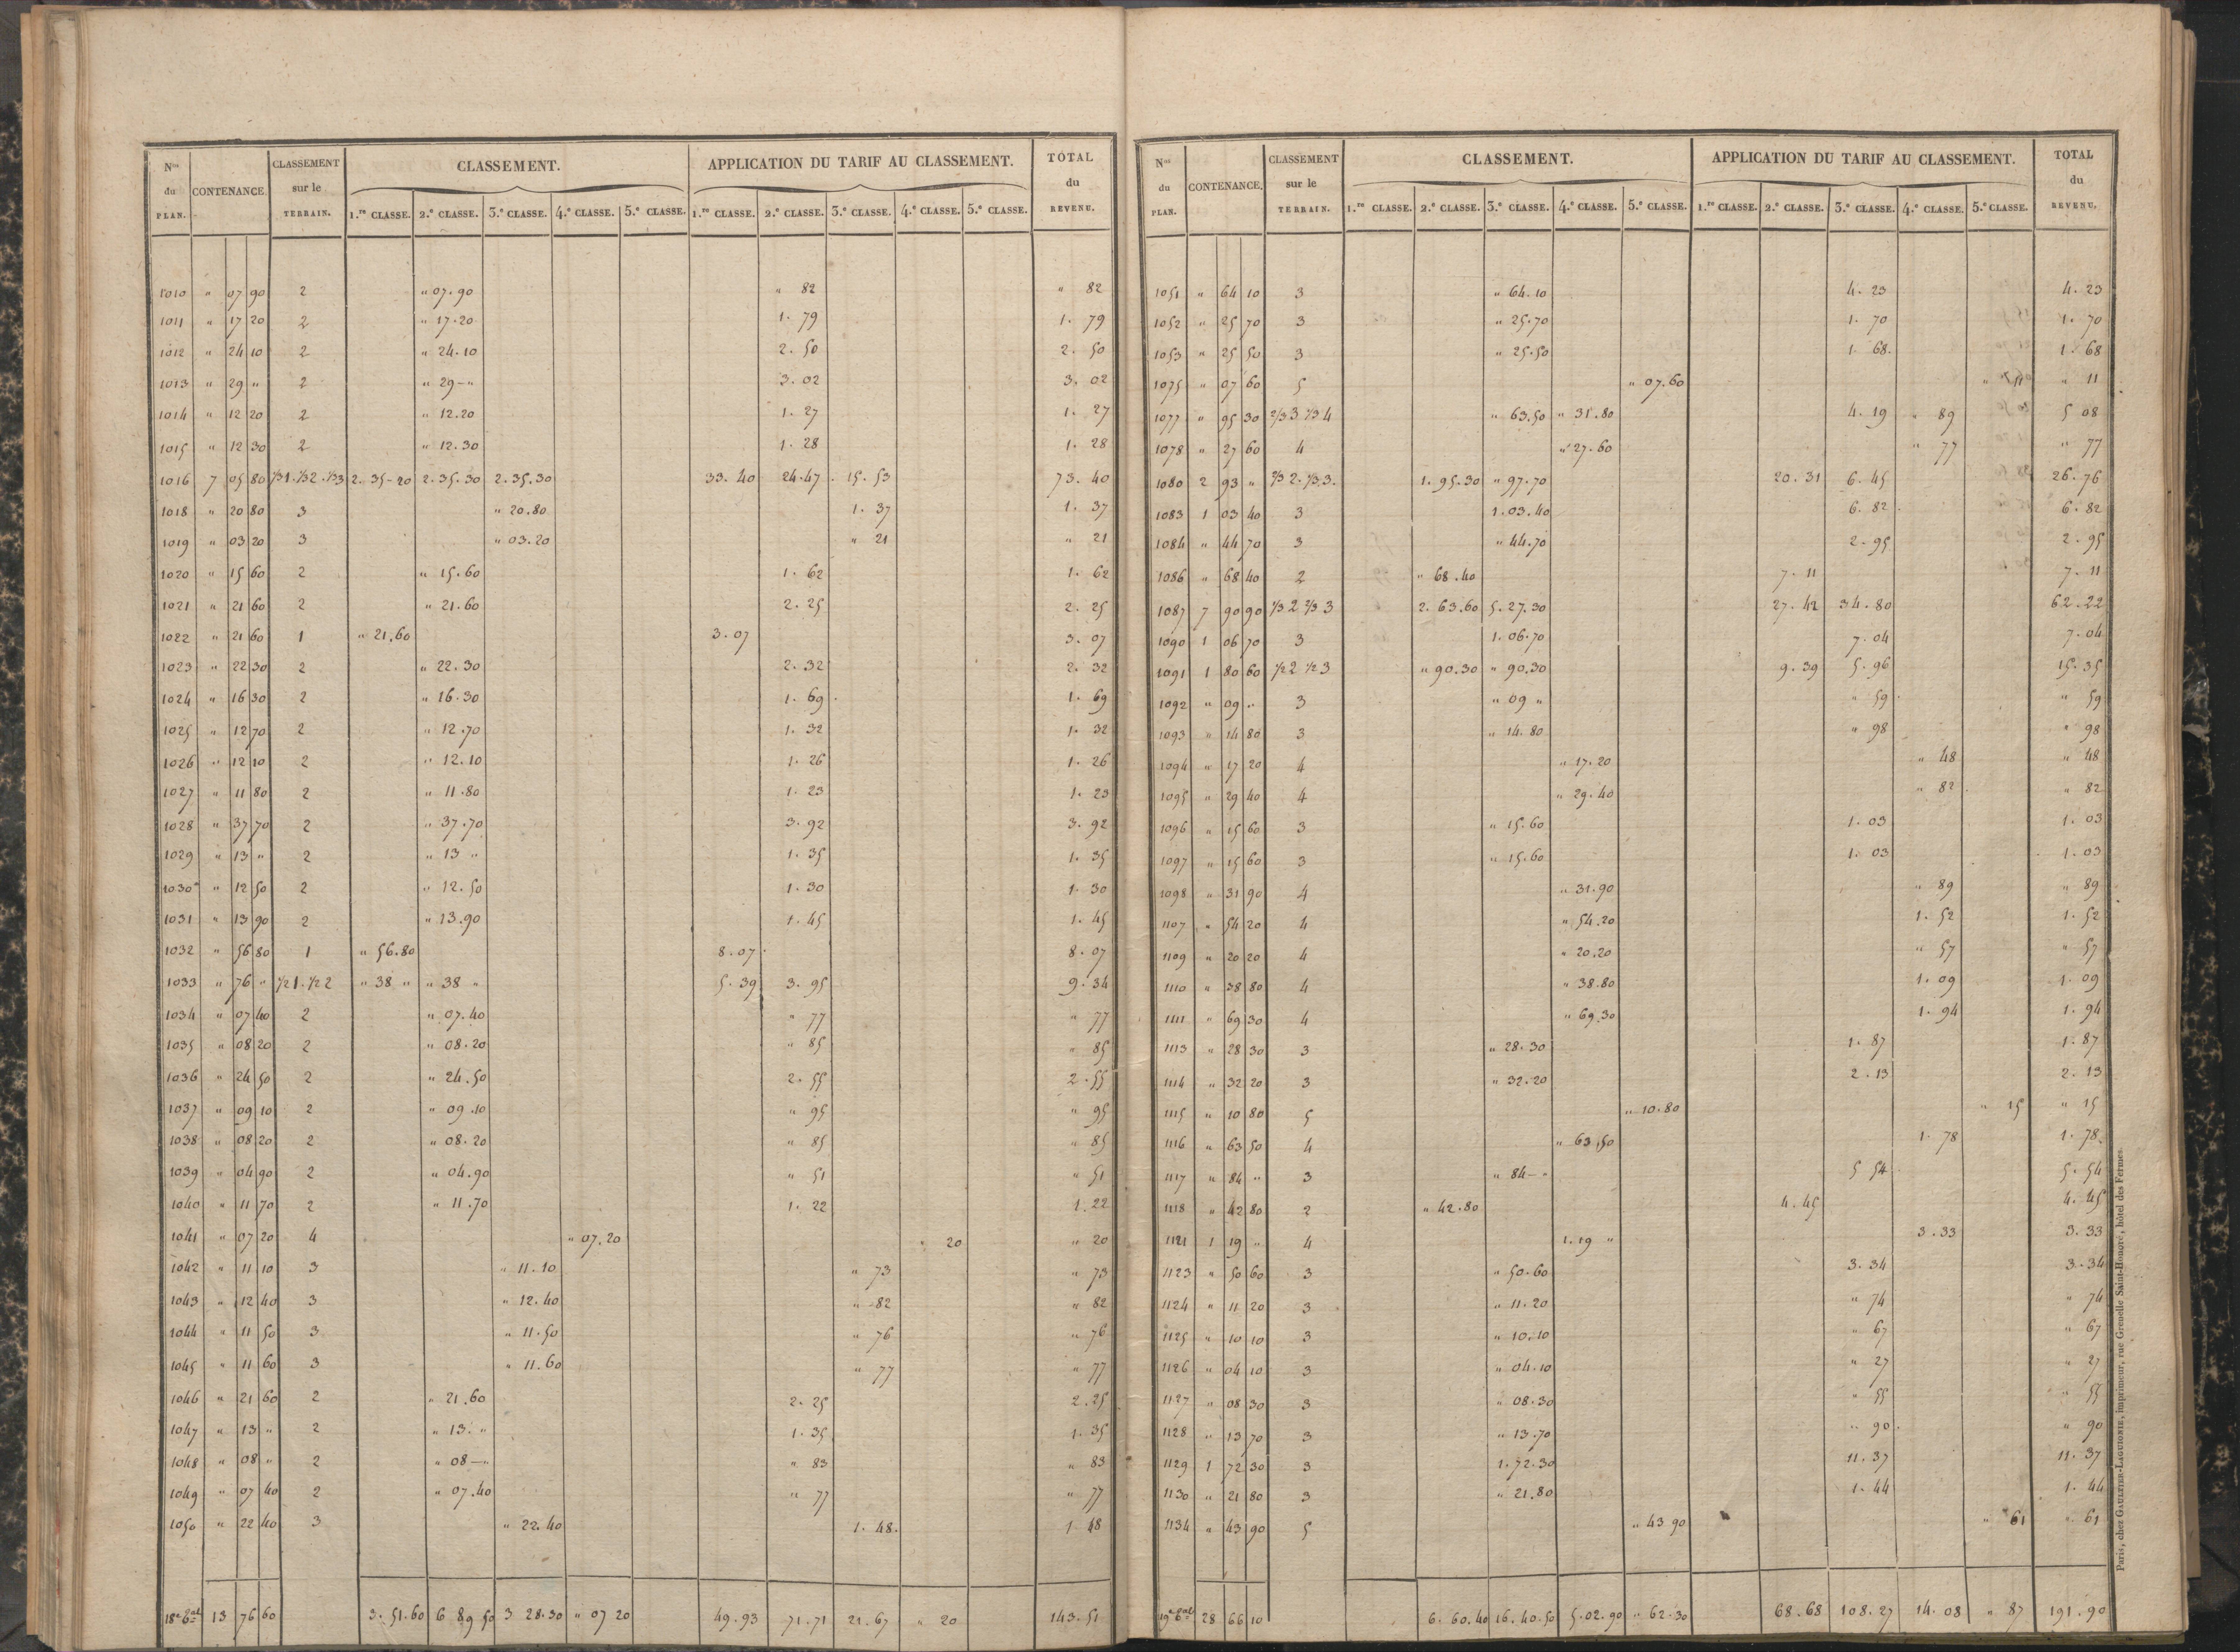 Nos du PLAN. CONTENANCE. CLASSEMENT sur le TERRAIN. CLASSEMENT. APPLICATION DU TARIF AU CLASSEMENT. TOTAL du REVENU.
1.re CLASSE. 2.e CLASSE. 3.e CLASSE. 4.e CLASSE. 5.e CLASSE. 1.re CLASSE. 2.e CLASSE. 3.e CLASSE. 4.e CLASSE. 5.e CLASSE.
1010 " 07 90 2 " 07.90 " 82 " 82
1011 " 17 20 2 " 17.20 1. 79 1. 79
1012 " 24 10 2 " 24.10 2. 50 2. 50
1013 " 29 " 2 " 29-" 3. 02 3. 02
1014 " 12 20 2 " 12.20 1. 27 1. 27
1015 " 12 30 2 " 12.30 1. 28 1. 28
1016 7 05 80 1/3 1. 1/3 2. 1/3 3 2. 35-20 2. 35. 30 2. 35. 30 33. 40 24.47 15. 53 73. 40
1018 " 20 80 3 " 20.80 1. 37 1. 37
1019 " 03 20 3 " 03.20 " 21 " 21
1020 " 15 60 2 " 15.60 1. 62 1. 62
1021 " 21 60 2 " 21.60 2. 25 2. 25
1022 " 21 60 1 " 21.60 3.07 3. 07
1023 " 22 30 2 " 22.30 2. 32 2. 32
1024 " 16 30 2 " 16.30 1. 69 1. 69
1025 " 12 70 2 " 12.70 1. 32 1. 32
1026 " 12 10 2 " 12.10 1. 26 1. 26
1027 " 11 80 2 " 11.80 1. 23 1. 23
1028 " 37 70 2 " 37.70 3. 92 3. 92
1029 " 13 " 2 " 13 " 1. 35 1. 35
1030 " 12 50 2 " 12.50 1. 30 1. 30
1031 " 13 90 2 " 13.90 1. 45 1. 45
1032 " 56 80 1 " 56.80 8.07 8. 07
1033 " 76 " 1/2 1. 1/2 2 " 38 " " 38 " 5. 39 3. 95 9. 34
1034 " 07 40 2 " 07.40 " 77 " 77
1035 " 08 20 2 " 08.20 " 85 " 85
1036 " 24 50 2 " 24.50 2. 55 2. 55
1037 " 09 10 2 " 09.10 " 95 " 95
1038 " 08 20 2 " 08.20 " 85 " 85
1039 " 04 90 2 " 04.90 " 51 " 51
1040 " 11 70 2 " 11.70 1. 22 1. 22
1041 " 07 20 4 " 07.20 " 20 " 20
1042 " 11 10 3 " 11.10 " 73 " 73
1043 " 12 40 3 " 12.40 " 82 " 82
1044 " 11 50 3 " 11.50 " 76 " 76
1045 " 11 60 3 " 11.60 " 77 " 77
1046 " 21 60 2 " 21.60 2. 25 2. 25
1047 " 13 " 2 " 13. " 1. 35 1. 35
1048 " 08 " 2 " 08-" " 83 " 83
1049 " 07 40 2 " 07.40 " 77 " 77
1050 " 22 40 3 " 22.40 1. 48. 1 48
13 76 60 3. 51.60 6 89 50 3 28.30 " 07 20 49.93 71.71 21.67 " 20 143.51
Nos du PLAN. CONTENANCE. CLASSEMENT sur le TERRAIN. CLASSEMENT. APPLICATION DU TARIF AU CLASSEMENT. TOTAL du REVENU.
1.re CLASSE. 2.e CLASSE. 3.e CLASSE. 4.e CLASSE. 5.e CLASSE. 1.re CLASSE. 2.e CLASSE. 3.e CLASSE. 4.e CLASSE. 5.e CLASSE.
1051 " 64 10 3 " 64.10 4. 23 4. 23
1052 " 25 70 3 " 25.70 1. 70 1. 70
1053 " 25 50 3 " 25.50 1. 68. 1. 68
1075 " 07 60 5 " 07.60 " 11 " 11
1077 " 95 30 2/3 3 1/3 4 " 63.50 " 31.80 4. 19 " 89 5 08
1078 " 27 60 4 " 27.60 " 77 " 77
1080 2 93 " 2/3 2. 1/3 3. 1. 95.30 " 97.70 20.31 6. 45 26.76
1083 1 03 40 3 1.03.40 6. 82 6. 82
1084 " 44 70 3 " 44.70 2. 95 2. 95
1086 " 68 40 2 " 68.40 7. 11 7. 11
1087 7 90 90 1/3 2 2/3 3 2. 63.60 5. 27.30 27.42 34.80 62.22
1090 1 06 70 3 1. 06.70 7. 04 7. 04
1091 1 80 60 1/2 2 1/2 3 " 90.30 " 90.30 9. 39 5. 96 15.35
1092 " 09 " 3 " 09 " " 59 " 59
1093 " 14 80 3 " 14.80 " 98 " 98
1094 " 17 20 4 " 17.20 " 48 " 48
1095 " 29 40 4 " 29.40 " 82 " 82
1096 " 15 60 3 " 15.60 1. 03 1. 03
1097 " 15 60 3 " 15.60 1. 03 1. 03
1098 " 31 90 4 " 31.90 " 89 " 89
1107 " 54 20 4 " 54.20 1. 52 1. 52
1109 " 20 20 4 " 20.20 " 57 " 57
1110 " 38 80 4 " 38.80 1. 09 1. 09
1111 " 69 30 4 " 69.30 1. 94 1. 94
1113 " 28 30 3 " 28.30 1. 87 1. 87
1114 " 32 20 3 " 32.20 2. 13 2. 13
1115 " 10 80 5 " 10.80 " 15 " 15
1116 " 63 50 4 " 63.50 1. 78 1. 78
1117 " 84 " 3 " 84-" 5 54 5. 54
1118 " 42 80 2 " 42.80 4. 45 4. 45
1121 1 19 " 4 1. 19 " 3. 33 3. 33
1123 " 50 60 3 " 50.60 3. 34 3. 34
1124 " 11 20 3 " 11.20 " 74 " 74
1125 " 10 10 3 " 10.10 " 67 " 67
1126 " 04 10 3 " 04.10 " 27 " 27
1127 " 08 30 3 " 08.30 " 55 " 55
1128 " 13 70 3 " 13.70 " 90 " 90
1129 1 72 30 3 1. 72.30 11. 37 11. 37
1130 " 21 80 3 " 21.80 1. 44 1. 44
1134 " 43 90 5 " 43 90 " 61 " 61
28 66 10 6. 60.40 16. 40.50 5.02.90 " 62.30 68.68 108.27 14.08 " 87 191.90
Paris, chez GAULTIER-LAGUIONIE, imprimeur, rue Grenelle Saint-Honoré, hôtel des Fermes.